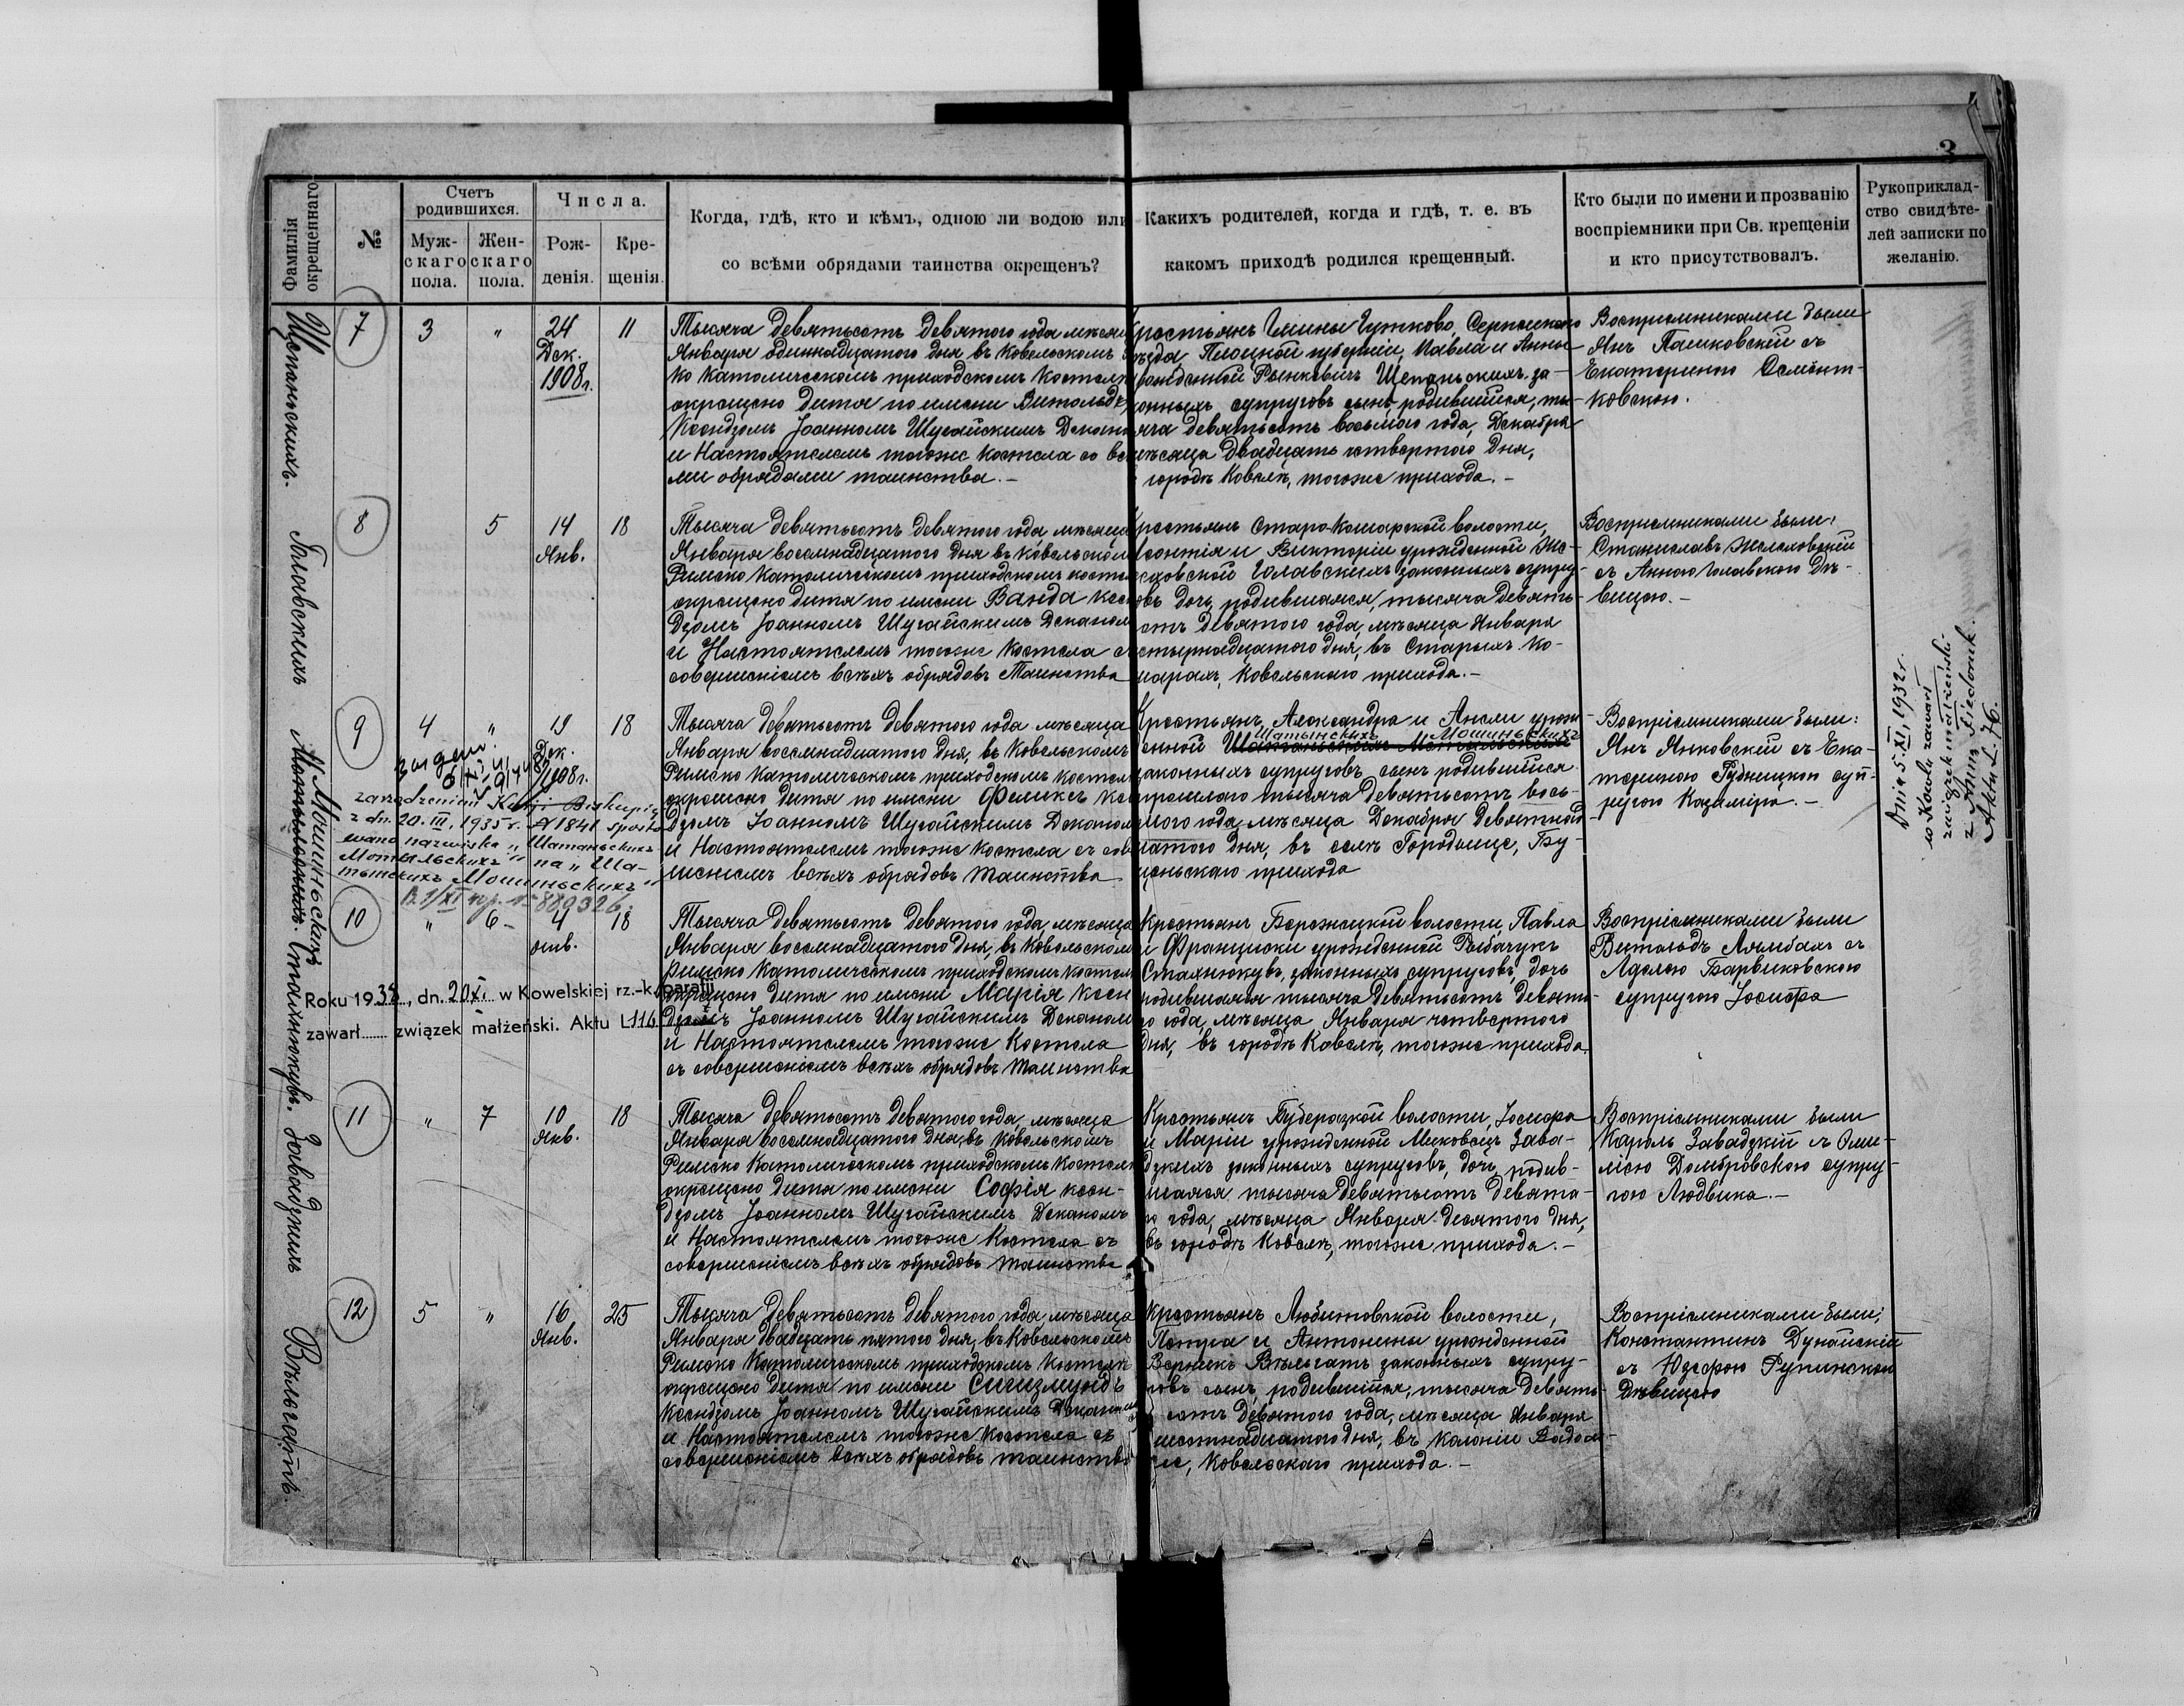 3
Фамилія окрещеннаго
№
Счетъ родившихся.
Муж-скаго пола.
Жен-скаго пола.
Числа.
Рож-денія.
Кре-щенія.
Когда, гдѣ, кто и кѣмъ, одною ли водою или
со всѣми обрядами таинства окрещенъ?
Какихъ родителей, когда и гдѣ, т. е. въ
какомъ приходѣ родился крещенный.
Кто были по имени и прозванію
воспріемники при Св. крещеніи
и кто присутствовалъ.
Рукоприклад-
ство свидѣте-
лей записки по
желанію.
Щепаньскихъ.
7
3
"
24
Дек.
1908 г.
11
Тысяча девятьсотъ девятого года мѣсяц
Января одиннадцатого дня въ Ковельскомъ
ко католическомъ приходскомъ костел
окрещено дитя по имени Витольдъ
Ксендзомъ Іоанномъ Шугайскимъ Декано
и Настоятелемъ тогоже костела со вс
ми обрядами таинства.-
Крестьянъ Гмины Гутково, Серпецкаго
ѣзда Плоцкой губерніи, Павла и Анны
рожденной Рынкевичъ Щепаньскихъ за-
онныхъ супруговъ сынъ, родившійся, ты-
яча девятьсотъ восьмого года, Декабря
мѣсяца двадцать четвертого дня,
городѣ Ковелѣ, тогоже прихода.-
Воспріемниками были
Янъ Пашковскій съ
Екатериною
ковскою.
Голавскихъ
8
5
14
Янв.
18
Тысяча девятьсотъ девятого года, мѣсяца
Января восемнадцатого дня въ Ковельском
Римско Католическомъ приходскомъ косте
окрещено дитя по имени Ванда ксен
дзомъ Іоанномъ Шугайскимъ Деканом
и Настоятелемъ тогоже костела с
совершеніемъ всѣхъ обрядовъ Таинства
Крестьянъ Старо-Кошарской волости,
еонтія и Викторіи урожденной Же-
еховской Голавскихъ законныхъ супру-
овъ дочь, родившаяся, тысяча девять-
отъ девятого года, мѣсяца Января
етырнадцатого дня, въ Старыхъ Ко-
шарахъ, Ковельскаго прихода.-
Воспріемниками были:
Станиславъ Желеховскій
съ Анною Голавскою дѣ-
вицею.-
Мошиньскихъ
9
4
"
19
Дек.
1908 г.
18
zarządzeniem Kurji Biskupiej
z dn. 20.III.1935 r. N 1841 sprosto
wano nazwisko „Шатаньскихъ
Мотыльскихъ" na „Ша-
тынскихъ Мошиньскихъ"
Тысяча девятьсотъ девятого года мѣсяца
Января восемнадцатого дня, въ Ковельскомъ
Римско Католическомъ приходскомъ костел
окрещено дитя по имени Феликсъ кс
дзомъ Іоанномъ Шугайскимъ Деканом
и Настоятелемъ тогоже костела съ сов
шеніемъ всѣхъ обрядовъ таинства
Крестьянъ, Александра и Анели урож
Шатынскихъ Мошиньскихъ
енной
законныхъ супруговъ, сынъ родившійся
прошлаго тысяча девятьсотъ вось-
мого года, мѣсяца Декабря девятнад
цатого дня, въ селѣ Городище,
прихода
Воспріемниками были:
Янъ Янковскій съ Ека-
териною Рудницкою суп-
ругою Казиміра.-
Dnia 5.XI.1932 r.
w Kowlu zawarł
związek małżeński
z Anną Fiedoruk.
Aktu L. 76.
Стахнюкувъ.
10
"
6
4
Янв.
18
Roku 1938, dn. 20 XI. w Kowelskiej rz.-k. parafji
zawarł........ związek małżeński. Aktu L 116
Тысяча девятьсотъ девятого года, мѣсяца
Января восемнадцатого дня, въ Ковельском
Римско Католическомъ приходскомъ костел
окрещено дитя по имени Марія ксен
дзомъ Іоанномъ Шугайскимъ Деканом
и Настоятелемъ тогоже Костела
съ совершеніемъ всѣхъ обрядовъ таинства
Крестьянъ волости, Павла
и Францишки урожденной Рыбачукъ
Стахнюкувъ, законныхъ супруговъ, дочь
родившаяся тысяча девятьсотъ девято-
го года, мѣсяца Января четвертого
дня, въ городѣ Ковелѣ, тогоже прихода.
Воспріемниками были
Витольдъ съ
Аделою Барвиковскою
супругою Іосифа
Завадзкихъ
11
"
7
10
Янв.
18
Тысяча девятьсотъ девятого года, мѣсяца
Января восемнадцатого дня, въ Ковельскомъ
Римско Католическомъ приходскомъ костел
окрещено дитя по имени Софія ксен-
дзомъ Іоанномъ Шугайскимъ Деканомъ
и Настоятелемъ тогоже Костела съ
совершеніемъ всѣхъ обрядовъ таинства
Крестьянъ волости, Іосифа
и Маріи урожденной Миховецъ Зава-
дзкихъ законныхъ супруговъ, дочь, родив-
шаяся, тысяча девятьсотъ девято-
го года, мѣсяца Января десятого дня,
въ городѣ Ковелѣ, тогоже прихода.-
Воспріемниками были
Кароль Завадзкій съ Эми-
ліею Домбровскою супру-
гою Людвика.-
Вѣльгатъ.
12
5
"
16
Янв.
25
Тысяча девятьсотъ девятого года, мѣсяца
Января двадцать пятого дня, въ Ковельскомъ
Римско Католическомъ приходскомъ костелѣ
окрещено дитя по имени Сигизмундъ
Ксендзомъ Іоанномъ Шугайскимъ Деканом
и Настоятелемъ тогоже костела съ
совершеніемъ всѣхъ обрядовъ таинства
Крестьянъ Любитовской волости,
Петра и Антонины урожденной
Верникъ Вѣльгатъ законныхъ супру-
говъ сынъ, родившійся, тысяча девять-
сотъ девятого года, мѣсяца Января
шестнадцатого дня, въ колоніи
Ковельскаго прихода.-
Воспріемниками были:
Константинъ Дунайскій
съ Юзефою Рупинскою
дѣвицею